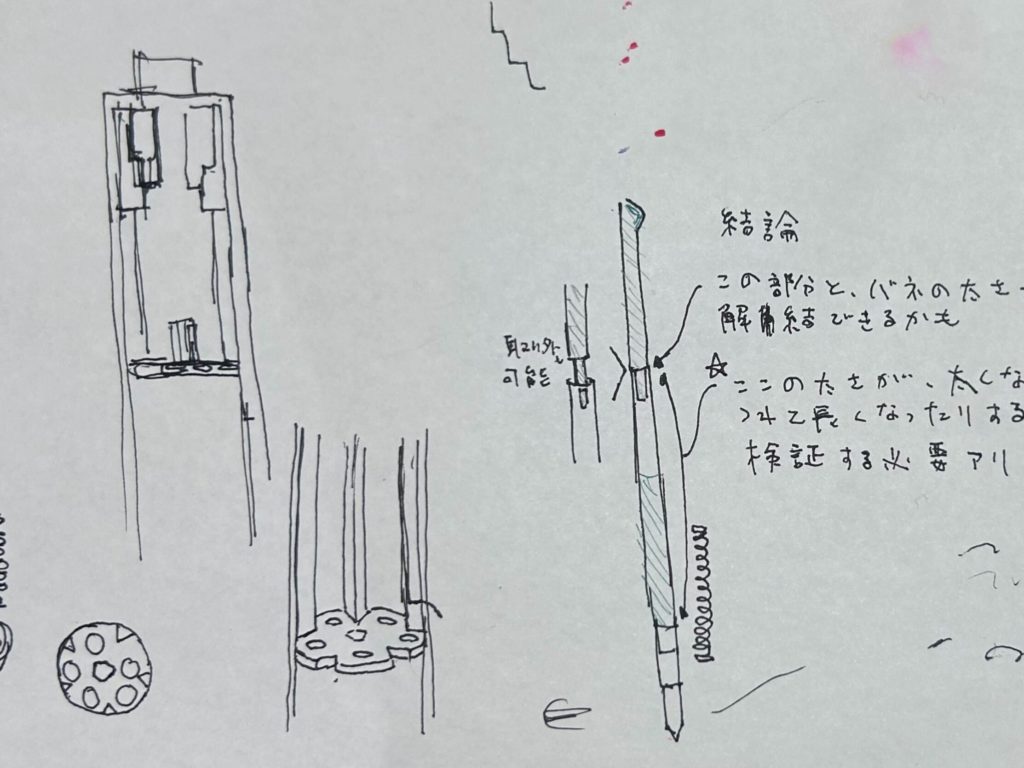 結論
この部分と、バネの太さ
解結できるかも
取り外し
可能
☆ここの太さが、太くな
つれて長くなったりする
検証する必要アリ